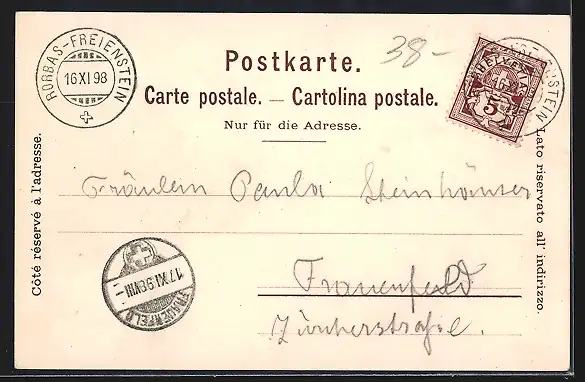 RORBAS-FREIENSTEIN
16 XI 98
38-
Postkarte.
Carte postale. — Cartolina postale.
Nur für die Adresse.
HELVETIA
5
Côté réservé à l'adresse.
Lato riservato all' indirizzo.
Fräulein Paula Steinhäuser
Frauenfeld
Zürcherstraße.
17 XI 98 VIII -
FRAUENFELD